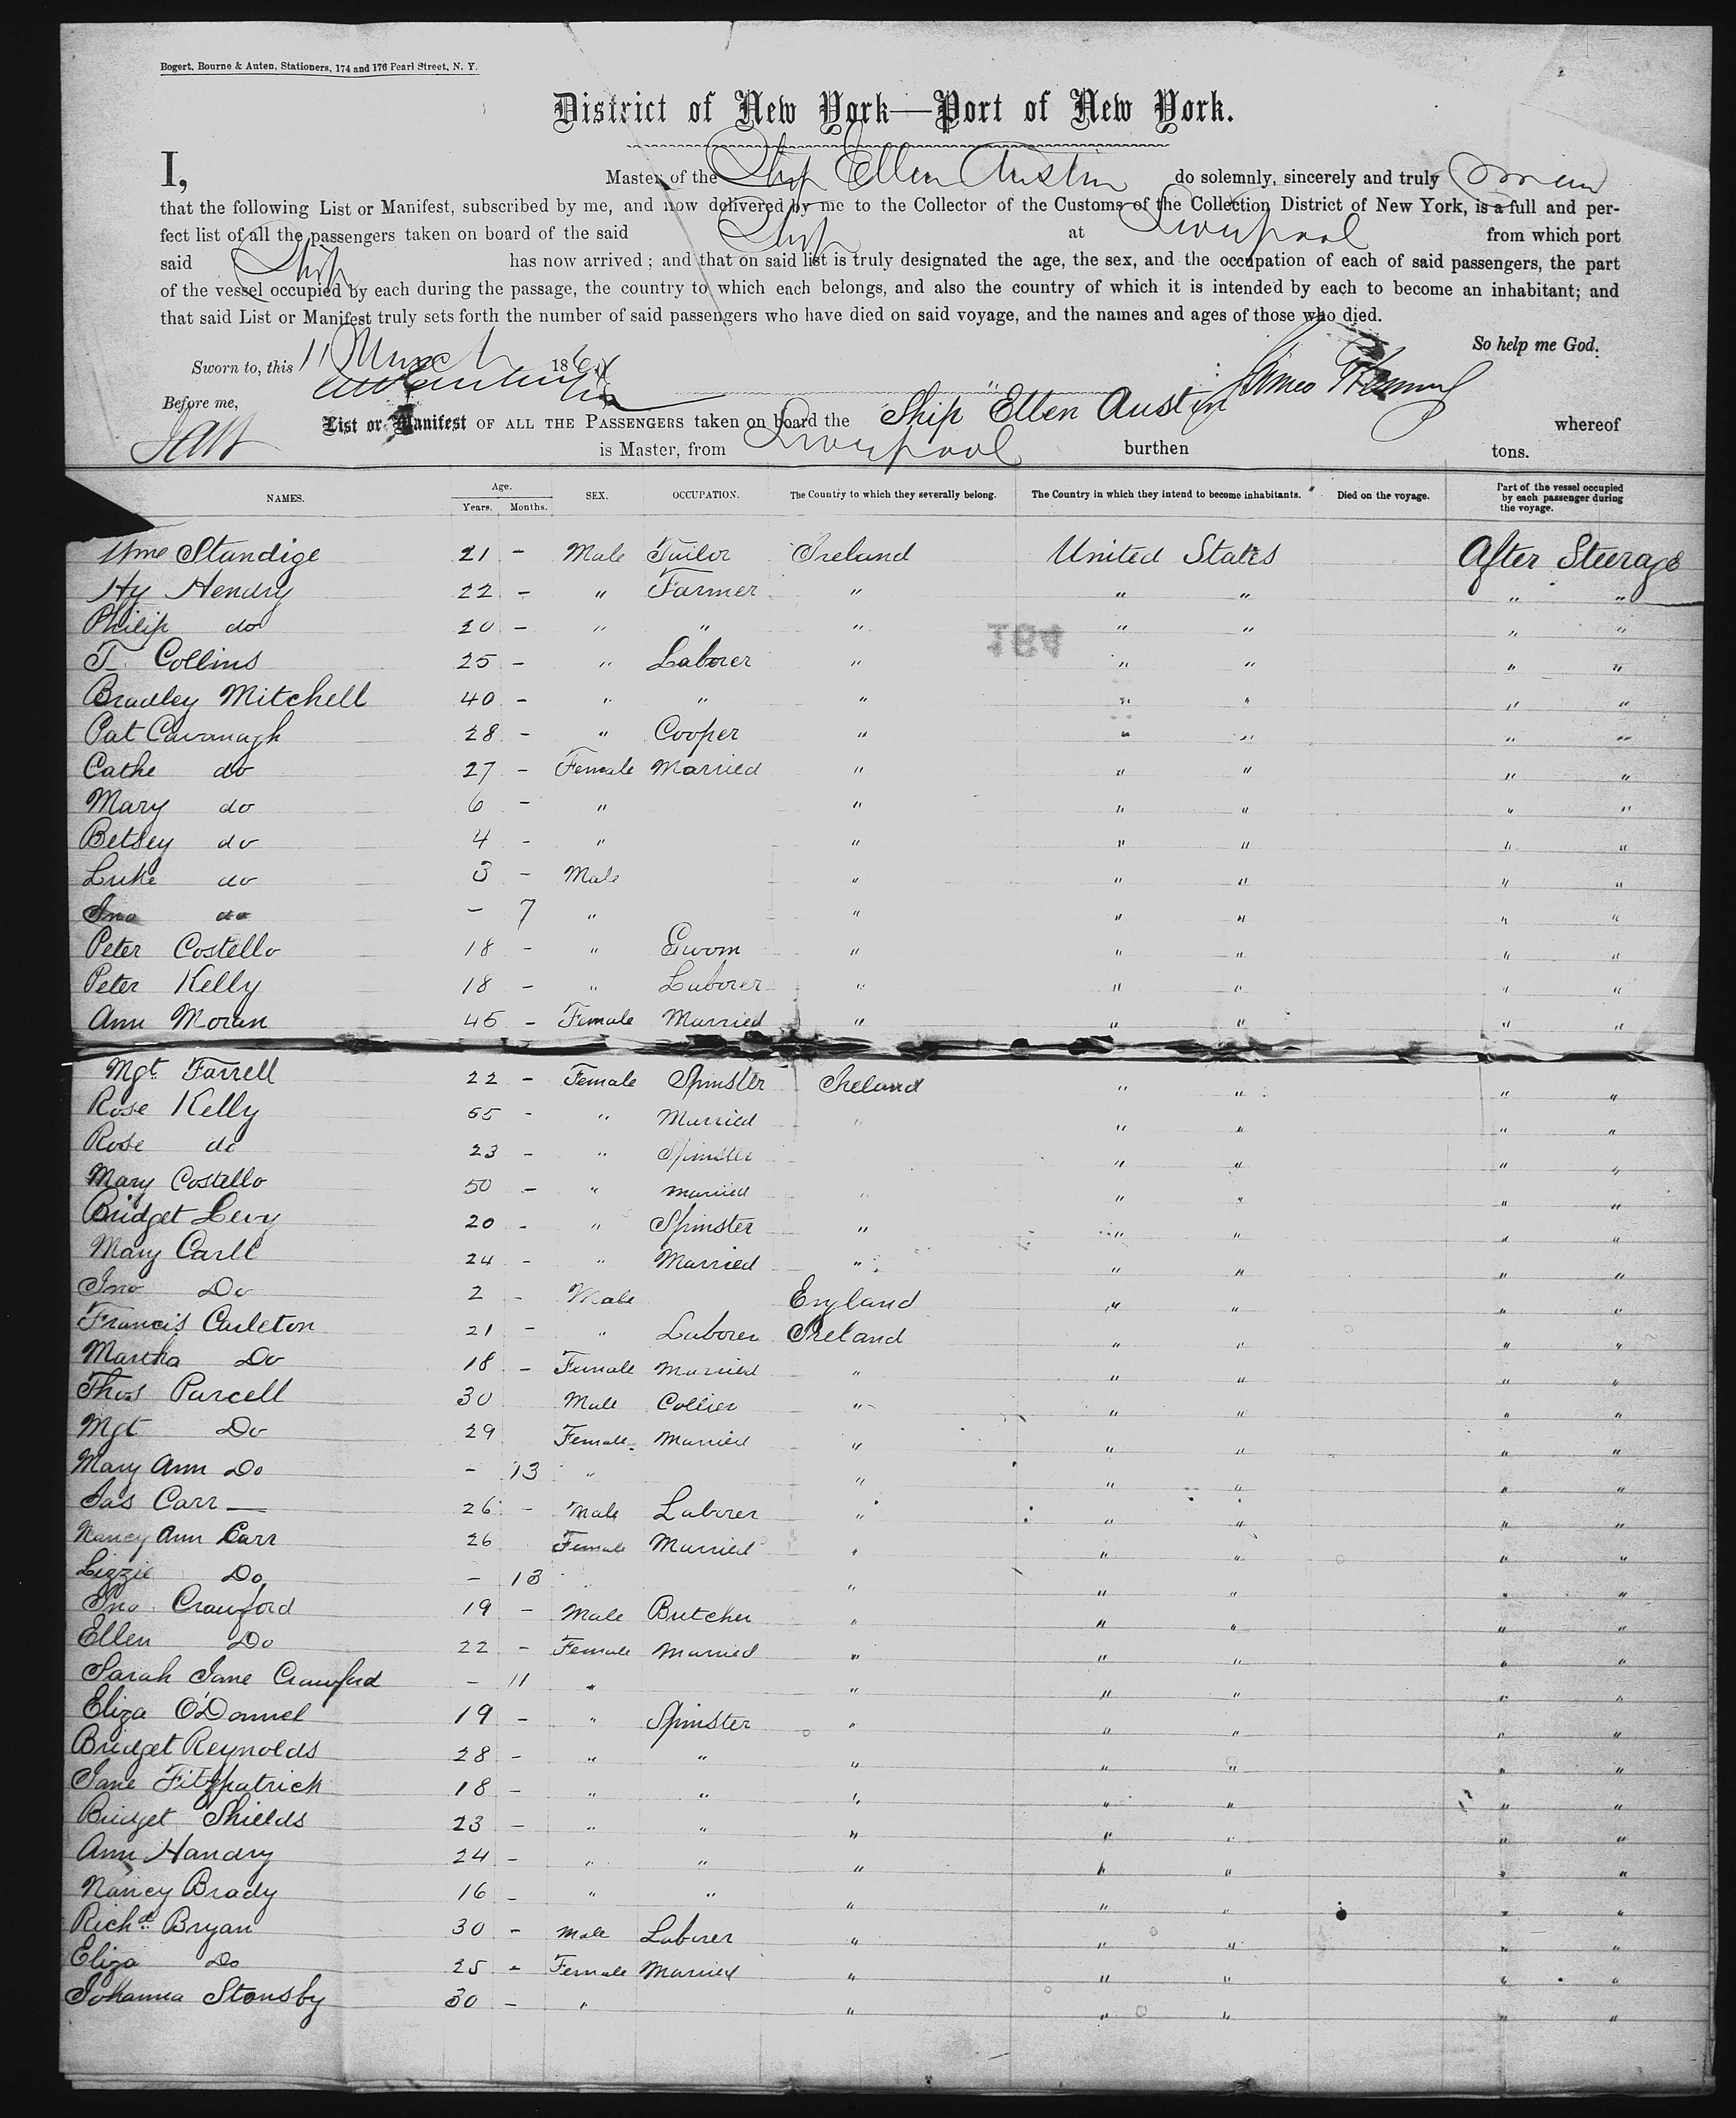 Bogert, Bourne & Auten, Stationers, 174 and 176 Pearl Street, N. Y.
District of New York—Port of New York.
I, Master of the Ship Ellen Austin do solemnly, sincerely and truly
that the following List or Manifest, subscribed by me, and now delivered by me to the Collector of the Customs of the Collection District of New York, is a full and per-
fect list of all the passengers taken on board of the said Ship at Liverpool from which port
said Ship has now arrived; and that on said list is truly designated the age, the sex, and the occupation of each of said passengers, the part
of the vessel occupied by each during the passage, the country to which each belongs, and also the country of which it is intended by each to become an inhabitant; and
that said List or Manifest truly sets forth the number of said passengers who have died on said voyage, and the names and ages of those who died.
So help me God.
Sworn to, this 11 March 1864
Before me,
List or Manifest OF ALL THE PASSENGERS taken on board the Ship Ellen Austin whereof
is Master, from Liverpool burthen tons.
NAMES. Age. Years. Months. SEX. OCCUPATION. The Country to which they severally belong. The Country in which they intend to become inhabitants. Died on the voyage. Part of the vessel occupied by each passenger during the voyage.
Wme Standige 21 - Male Tailor Ireland United States After Steerage
Hy Hendry 22 - " Farmer " " " " "
Philip do 20 - " " " " " " "
184
T. Collins 25 - " Laborer " " " " "
Bradley Mitchell 40 - " " " " " " "
Pat Cavanagh 28 - " Cooper " " " " "
Cathe do 27 - Female Married " " " " "
Mary do 6 - " " " " " "
Betsey do 4 - " " " " " "
Luke do 3 - Male " " " " "
Jno do - 7 " " " " " "
Peter Costello 18 - " " " " " "
Peter Kelly 18 - " Laborer " " " " "
Ann Moran 45 - Female Married " " " " "
Mgt Farrell 22 - Female Spinster Ireland " " " "
Rose Kelly 55 - " Married " " " " "
Rose do 23 - " Spinster " " " "
Mary Costello 50 - " Married " " " " "
Bridget Levy 20 - " Spinster " " " " "
Mary Carll 24 - " Married " " " " "
Jno Do 2 - Male England " " " "
Francis Carleton 21 - " Laborer Ireland " " " "
Martha Do 18 - Female Married " " " " "
Thos Purcell 30 Male Collier " " " " "
Mgt Do 29 Female Married " " " " "
Mary Ann Do - 13 " " " " " "
Jas Carr 26 - Male Laborer " " " " "
Nancy Ann Carr 26 Female Married " " " " "
Lizzie Do - 13 " " " " " "
Jno Crawford 19 - Male Butcher " " " " "
Ellen Do 22 - Female Married " " " " "
Sarah Jane Crawford - 11 " " " " " "
Eliza O'Donnel 19 - " Spinster " " " " "
Bridget Reynolds 28 - " " " " " " "
Jane Fitzpatrick 18 - " " " " " " "
Bridget Shields 23 - " " " " " " "
Ann Handry 24 - " " " " " " "
Nancy Brady 16 - " " " " " " "
Richd Bryan 30 - Male Laborer " " " " "
Eliza Do 25 - Female Married " " " " "
Johanna Stonsby 30 - " " " " " "